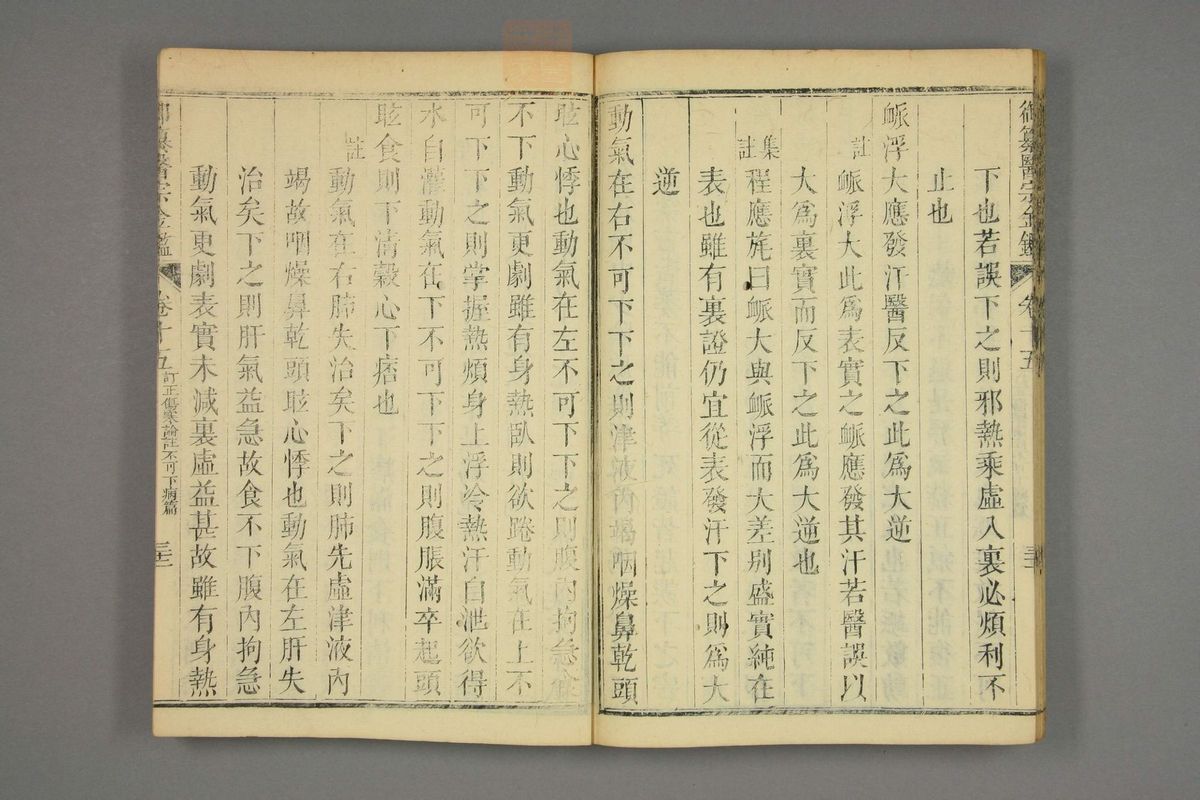 御纂醫宗金鑑 卷十五
下也若誤下之則邪熱乘虛入裏必煩利不
止也
脈浮大應發汗醫反下之此爲大逆
註 脈浮大此爲表實之脈應發其汗若醫誤以
大爲裏實而反下之此爲大逆也
集註 程應旄曰脈大與脈浮而大差別盛實純在
表也雖有裏證仍宜從表發汗下之則爲大
逆
動氣在右不可下下之則津液內竭咽燥鼻乾頭
眩心悸也動氣在左不可下下之則腹內拘急食
不下動氣更劇雖有身熱臥則欲踡動氣在上不
可下下之則掌握熱煩身上浮冷熱汗自泄欲得
水自灌動氣在下不可下下之則腹脹滿卒起頭
眩食則下淸穀心下痞也
註 動氣在右肺失治矣下之則肺先虛津液內
竭故咽燥鼻乾頭眩心悸也動氣在左肝失
治矣下之則肝氣益急故食不下腹內拘急
動氣更劇表實未減裏虛益甚故雖有身熱
御纂醫宗金鑑 卷十五 訂正傷寒論註不可下病篇